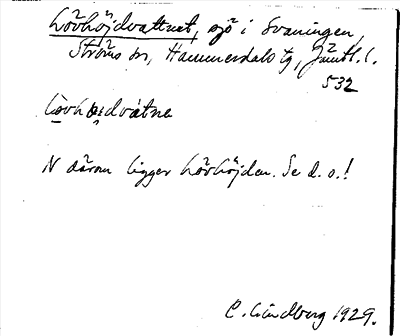 Lövhöjdvattnet, sjö i Svaningen,
Ströms sn, Hammerdals tg, Jämtl. l.
532
N därom ligger Lövhöjden. Se d. o.!
C. Lindberg 1929.